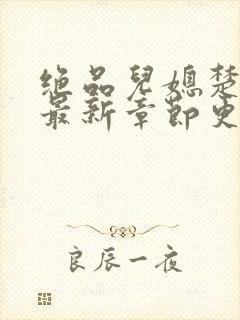 绝品儿媳楚
最新章节更
良辰一夜